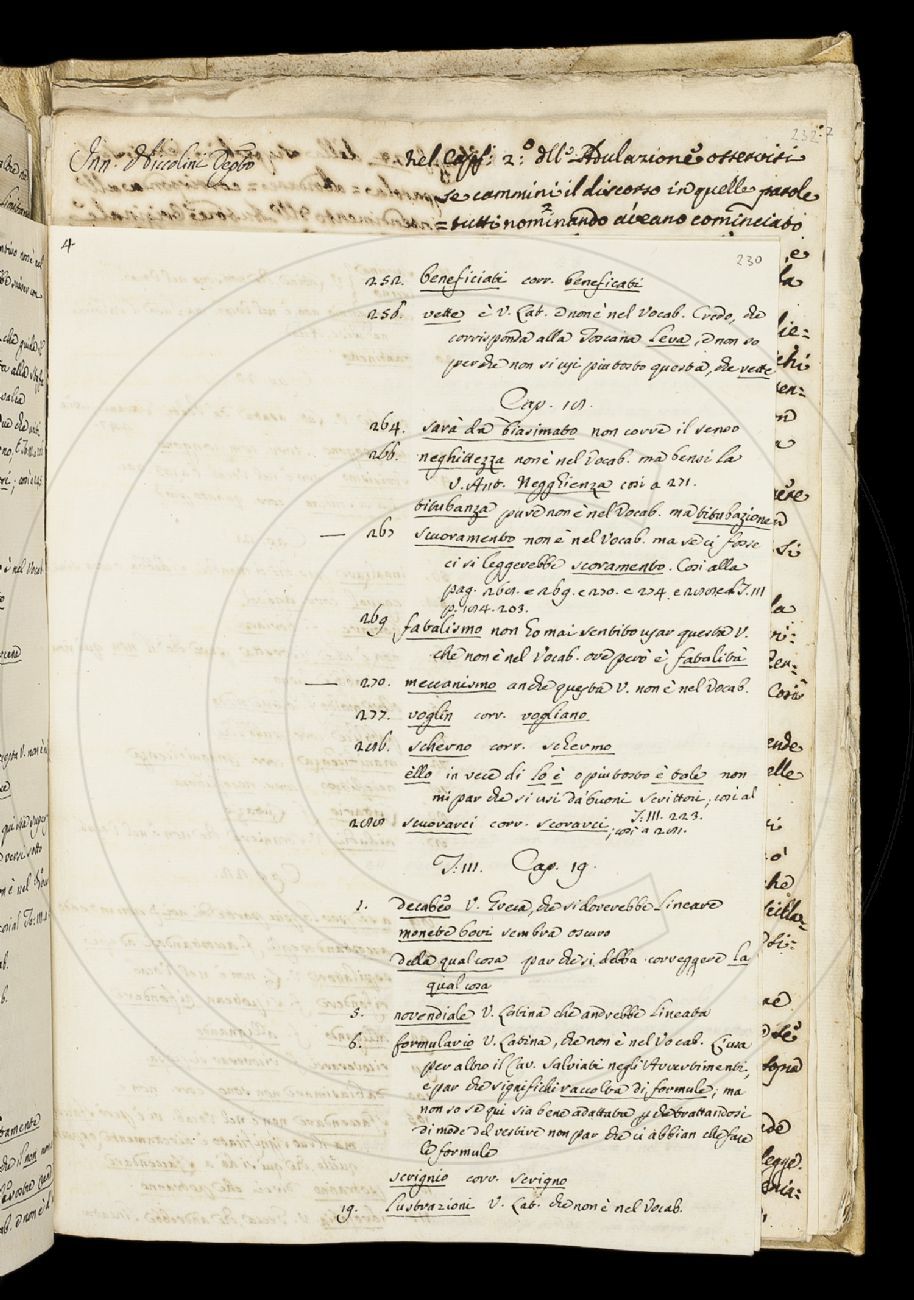 232.2
nel Capp: 2.º dll.º Adulazione osservisi
se cammini il discorso in quelle parole
= tutti nominando aveano cominciato
4
230
252. beneficiati corr. beneficati
256. vette è V. Lat. e non è nel Vocab. Credo, che
corrisponda alla Toscana Leva, e non so
perche non si usi piutosto questa, che vette
Cap. 18.
264. sarà da biasimato non corre il senso
266. neghittezza non è nel Vocab. ma bensi la
V. Ant. Negghienza cosi a 271.
titubanza pure non è nel Vocab. ma titubazione
— 267 scuoramento non è nel Vocab. ma se ci fosse
ci si leggerebbe scoramento. Cosi alla
pag. 268. e 269. e 270. e 274. e
269 fatalismo non ho mai sentito usar questa V.
che non è nel Vocab. ove però è fatalità
— 270. meccanismo anche questa V. non è nel Vocab.
277. voglin corr. vogliano
286. scherno corr. schermo
ello in vece di lo è o piutosto è tale non
mi par che si usi da' buoni scrittori, cosi al
T. III. 223.
288 scuorarci corr. scorarci, cosi a 281.
T. III. Cap. 19.
1. V. Greca, che si doverebbe lineare
monete bovi sembra oscuro
della qual cosa par che si debba correggere la
qual cosa
5. novendiale V. Latina che andrebbe lineata
6. formulario V. Latina, che non è nel Vocab. L'usa
per altro il Cav. Salviati negli Avvertimenti,
e par che significhi raccolta di formule; ma
non so se qui sia bene adattata p che trattandosi
di mode del vestire non par che ci abbian che fare
le formule
scrignio corr. scrigno
19. lustrazioni V. Lat. che non è nel Vocab.